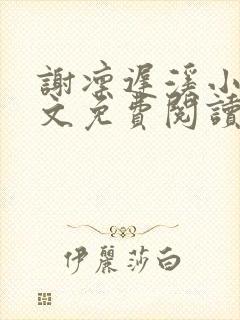 謝凛遲溪小
文免費閱讀
伊麗莎白